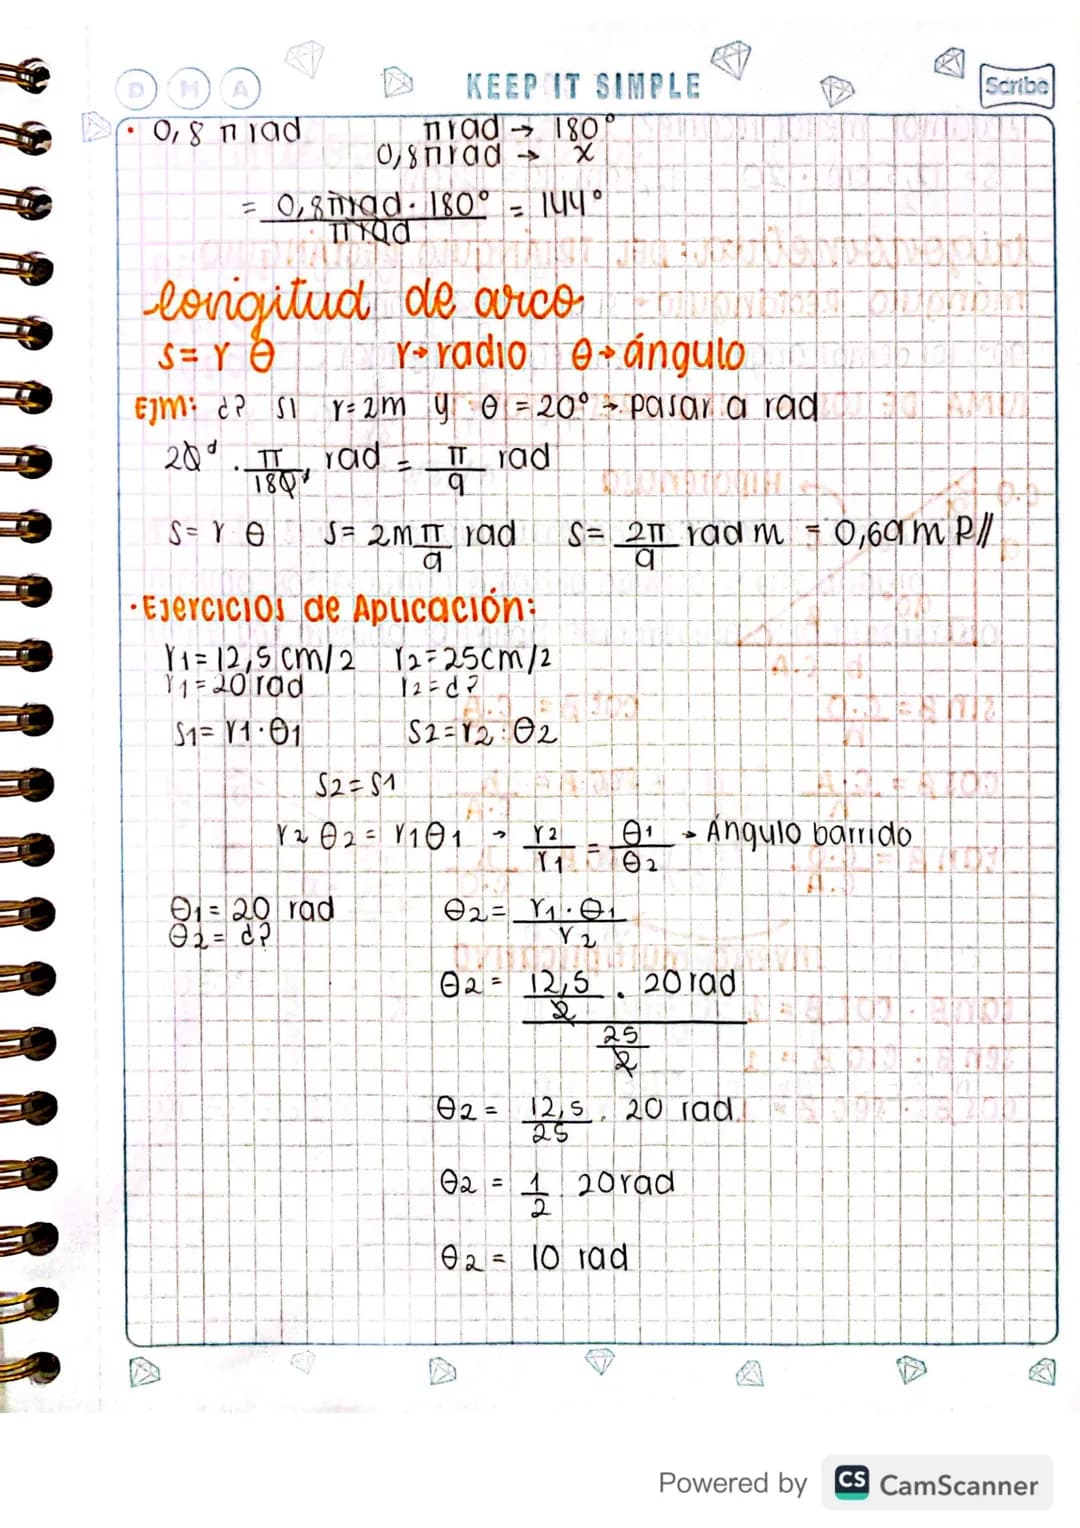 D M A KEEP IT SIMPLE Scribe
• 0,8 π rad π rad → 180°
0,8 π rad → x
= 0,8 π rad · 180° / π rad = 144°
longitud de arco
s = r θ r → radio θ → ángulo
Ejm: ¿? si r = 2m y θ = 20° → pasar a rad
20° · π/180° rad = π/9 rad
s = r θ s = 2m π/9 rad s = 2π/9 rad m = 0,69 m R//
• Ejercicios de Aplicación:
r1 = 12,5 cm/2 r2 = 25cm/2
r1 = 20 rad r2 = ¿?
s1 = r1 · θ1 s2 = r2 · θ2
s2 = s1
r2 θ2 = r1 θ1 → r2/r1 = θ1/θ2 → Ángulo barrido
θ1 = 20 rad θ2 = r1 · θ1 / r2
θ2 = ¿?
θ2 = 12,5/2 · 20 rad / 25/2
θ2 = 12,5/25 · 20 rad
θ2 = 1/2 20 rad
θ2 = 10 rad
Powered by CS CamScanner